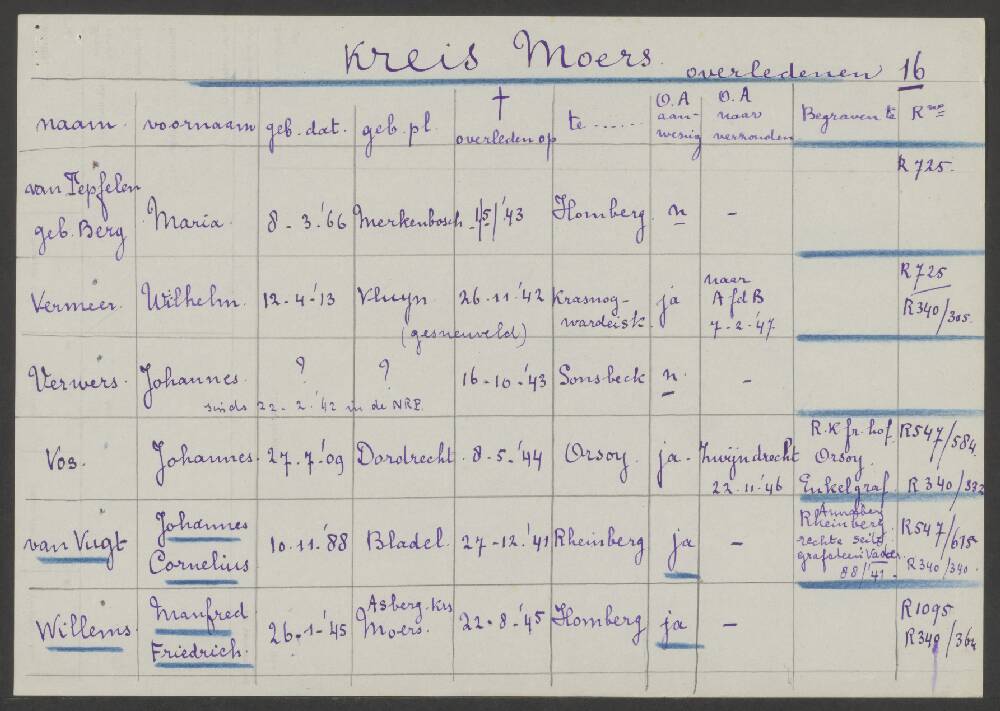 Kreis Moers. overledenen 16
naam. voornaam geb. dat. geb. pl. † overleden op te ...... O.A aan-wezig O.A naar verzonden Begraven te R
van Tepfelen geb. Berg Maria. 8 - 3.'66 Merkenbosch 15/'43 Homberg n - R 725.
Vermeer. Wilhelm. 12-4-'13 Vluyn 26.11.'42 Krasnog-wardeisk. ja naar A fd B 7-2-'47 R 725 R 340/305.
(gesneuveld)
Verwers. Johannes. ? ? 16-10-'43 Sonsbeck n -
sinds 22-2-'42 in de NRP.
Vos. Johannes. 27.7.'09 Dordrecht 8-5-'44 Orsoy. ja. Zwijndrecht 22.11.'46 R.K fr. hof. Orsoy. Enkelgraf R547/584. R 340/332
van Vugt Johannes Cornelius 10.11.'88 Bladel. 27-12.'41 Rheinberg ja - Rheinberg rechte seite grafsteen 88/'41. R547/615 R340/340.
Willems. Manfred Friedrich. 26.1-'45 Asberg. Krs Moers. 22-8-'45 Homberg ja - R1095 R340/364